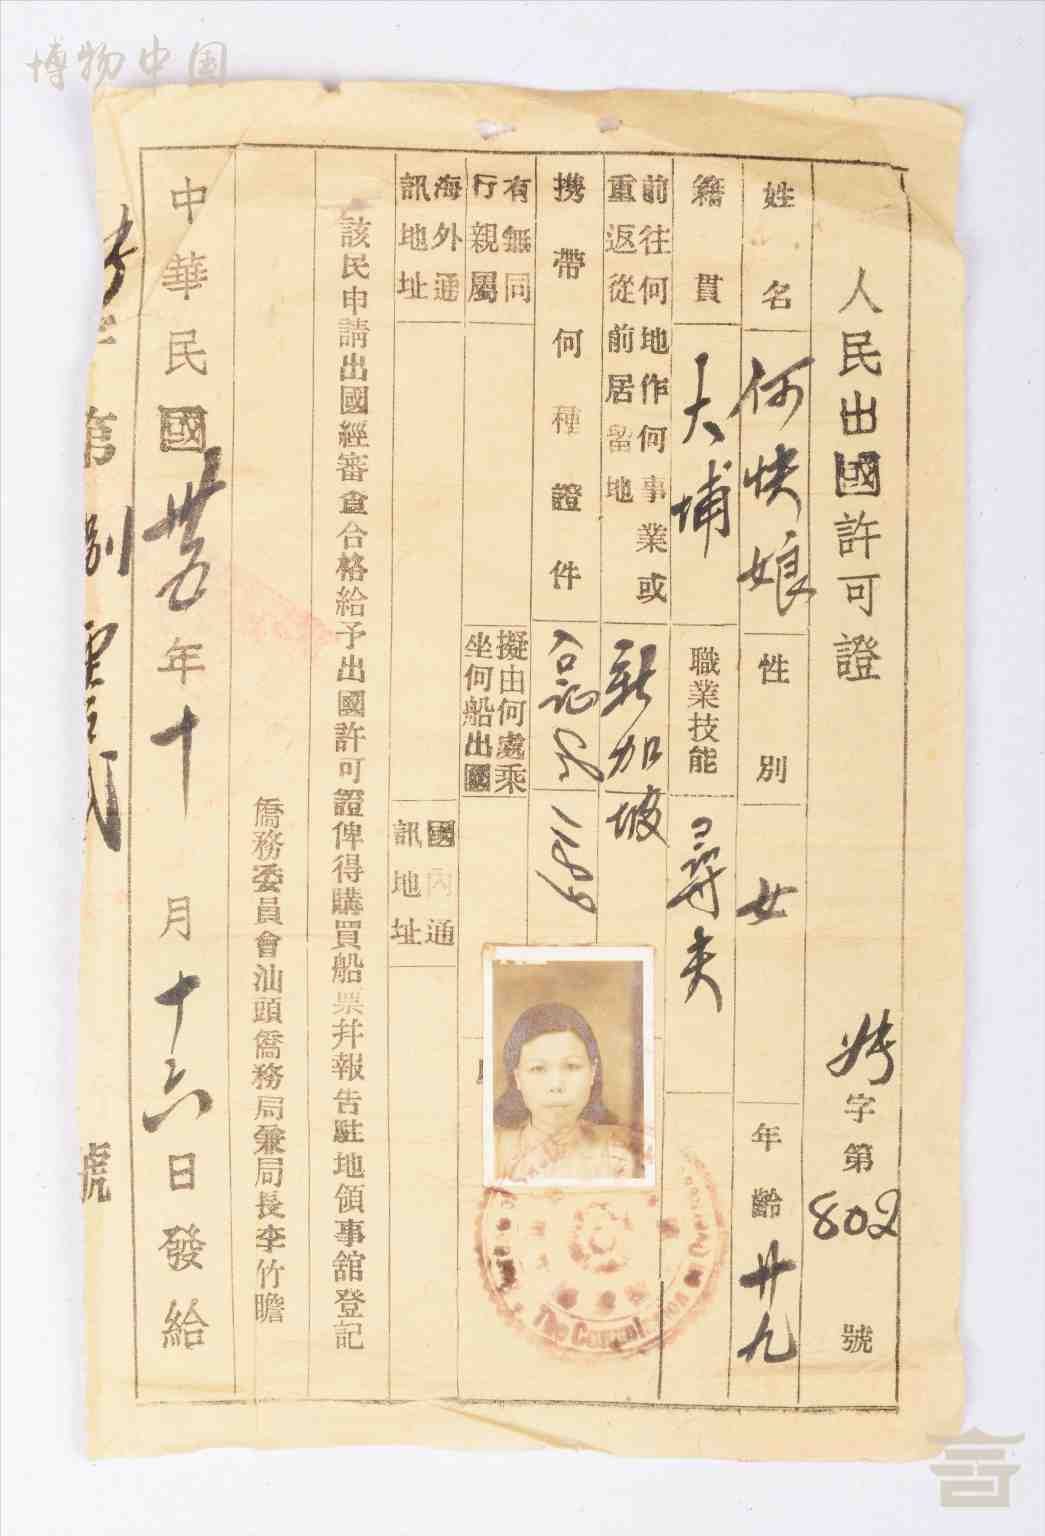 博物中国
人民出國許可證
字第802號
姓名
何快娘
性別
女
年齡
廿九
籍貫
大埔
職業技能
尋夫
前往何地作何事業或
重返從前居留地
新加坡
携帶何種證件
1189
有無同
行親屬
擬由何處乘
坐何船出國
海外通
訊地址
國內通
訊地址
該民申請出國經審查合格給予出國許可證俾得購買船票并報告駐地領事舘登記
僑務委員會汕頭僑務局兼局長李竹瞻
中華民國卅五年十月十六日發給
第捌零貳
號
The Consulate